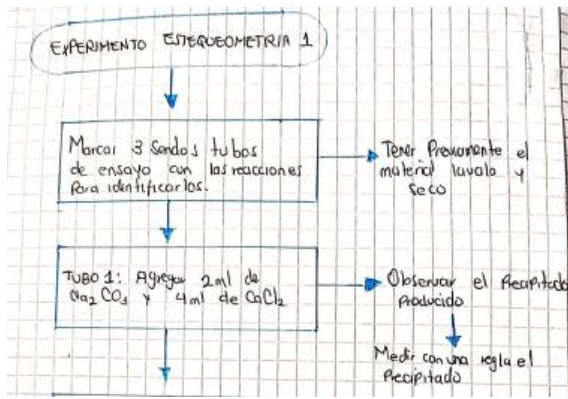 EXPERIMENTO ESTEQUEOMETRIA 1
Marcar 3 sendos tubos
de ensayo con las reacciones
Para identificarlos.
Tener Previamente el
material lavado y
seco
TUBO 1: Agregar 2ml de
Na2CO3 y 4ml de CaCl2
Observar el Precipitado
Producido
Medir con una regla el
Precipitado